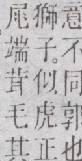 意不同郭也
獅子似虎正
尾端茸毛其